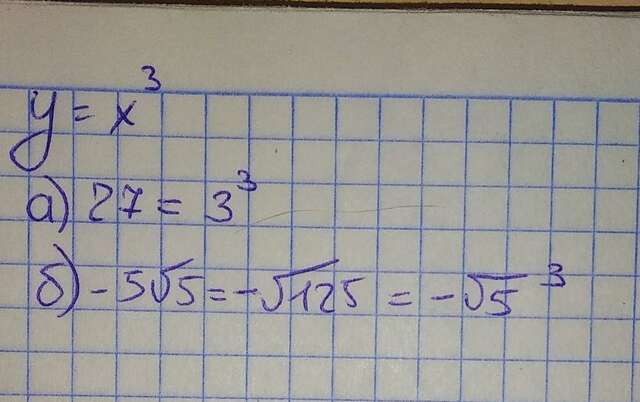 y = x³
а) 27 = 3³
б) - 5√5 = -√125 = -√5³